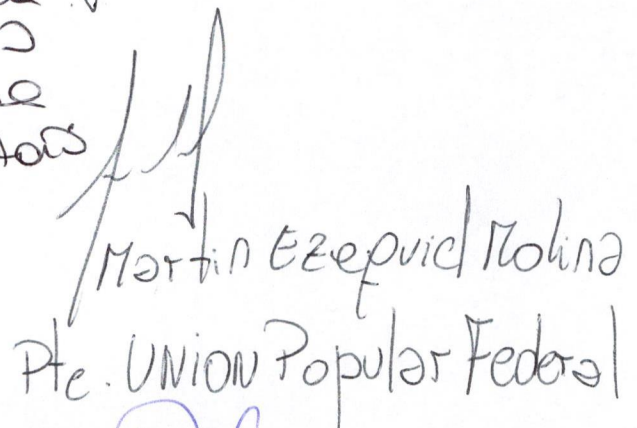 Martin Ezequiel Molina
Pte. UNION Popular Federal